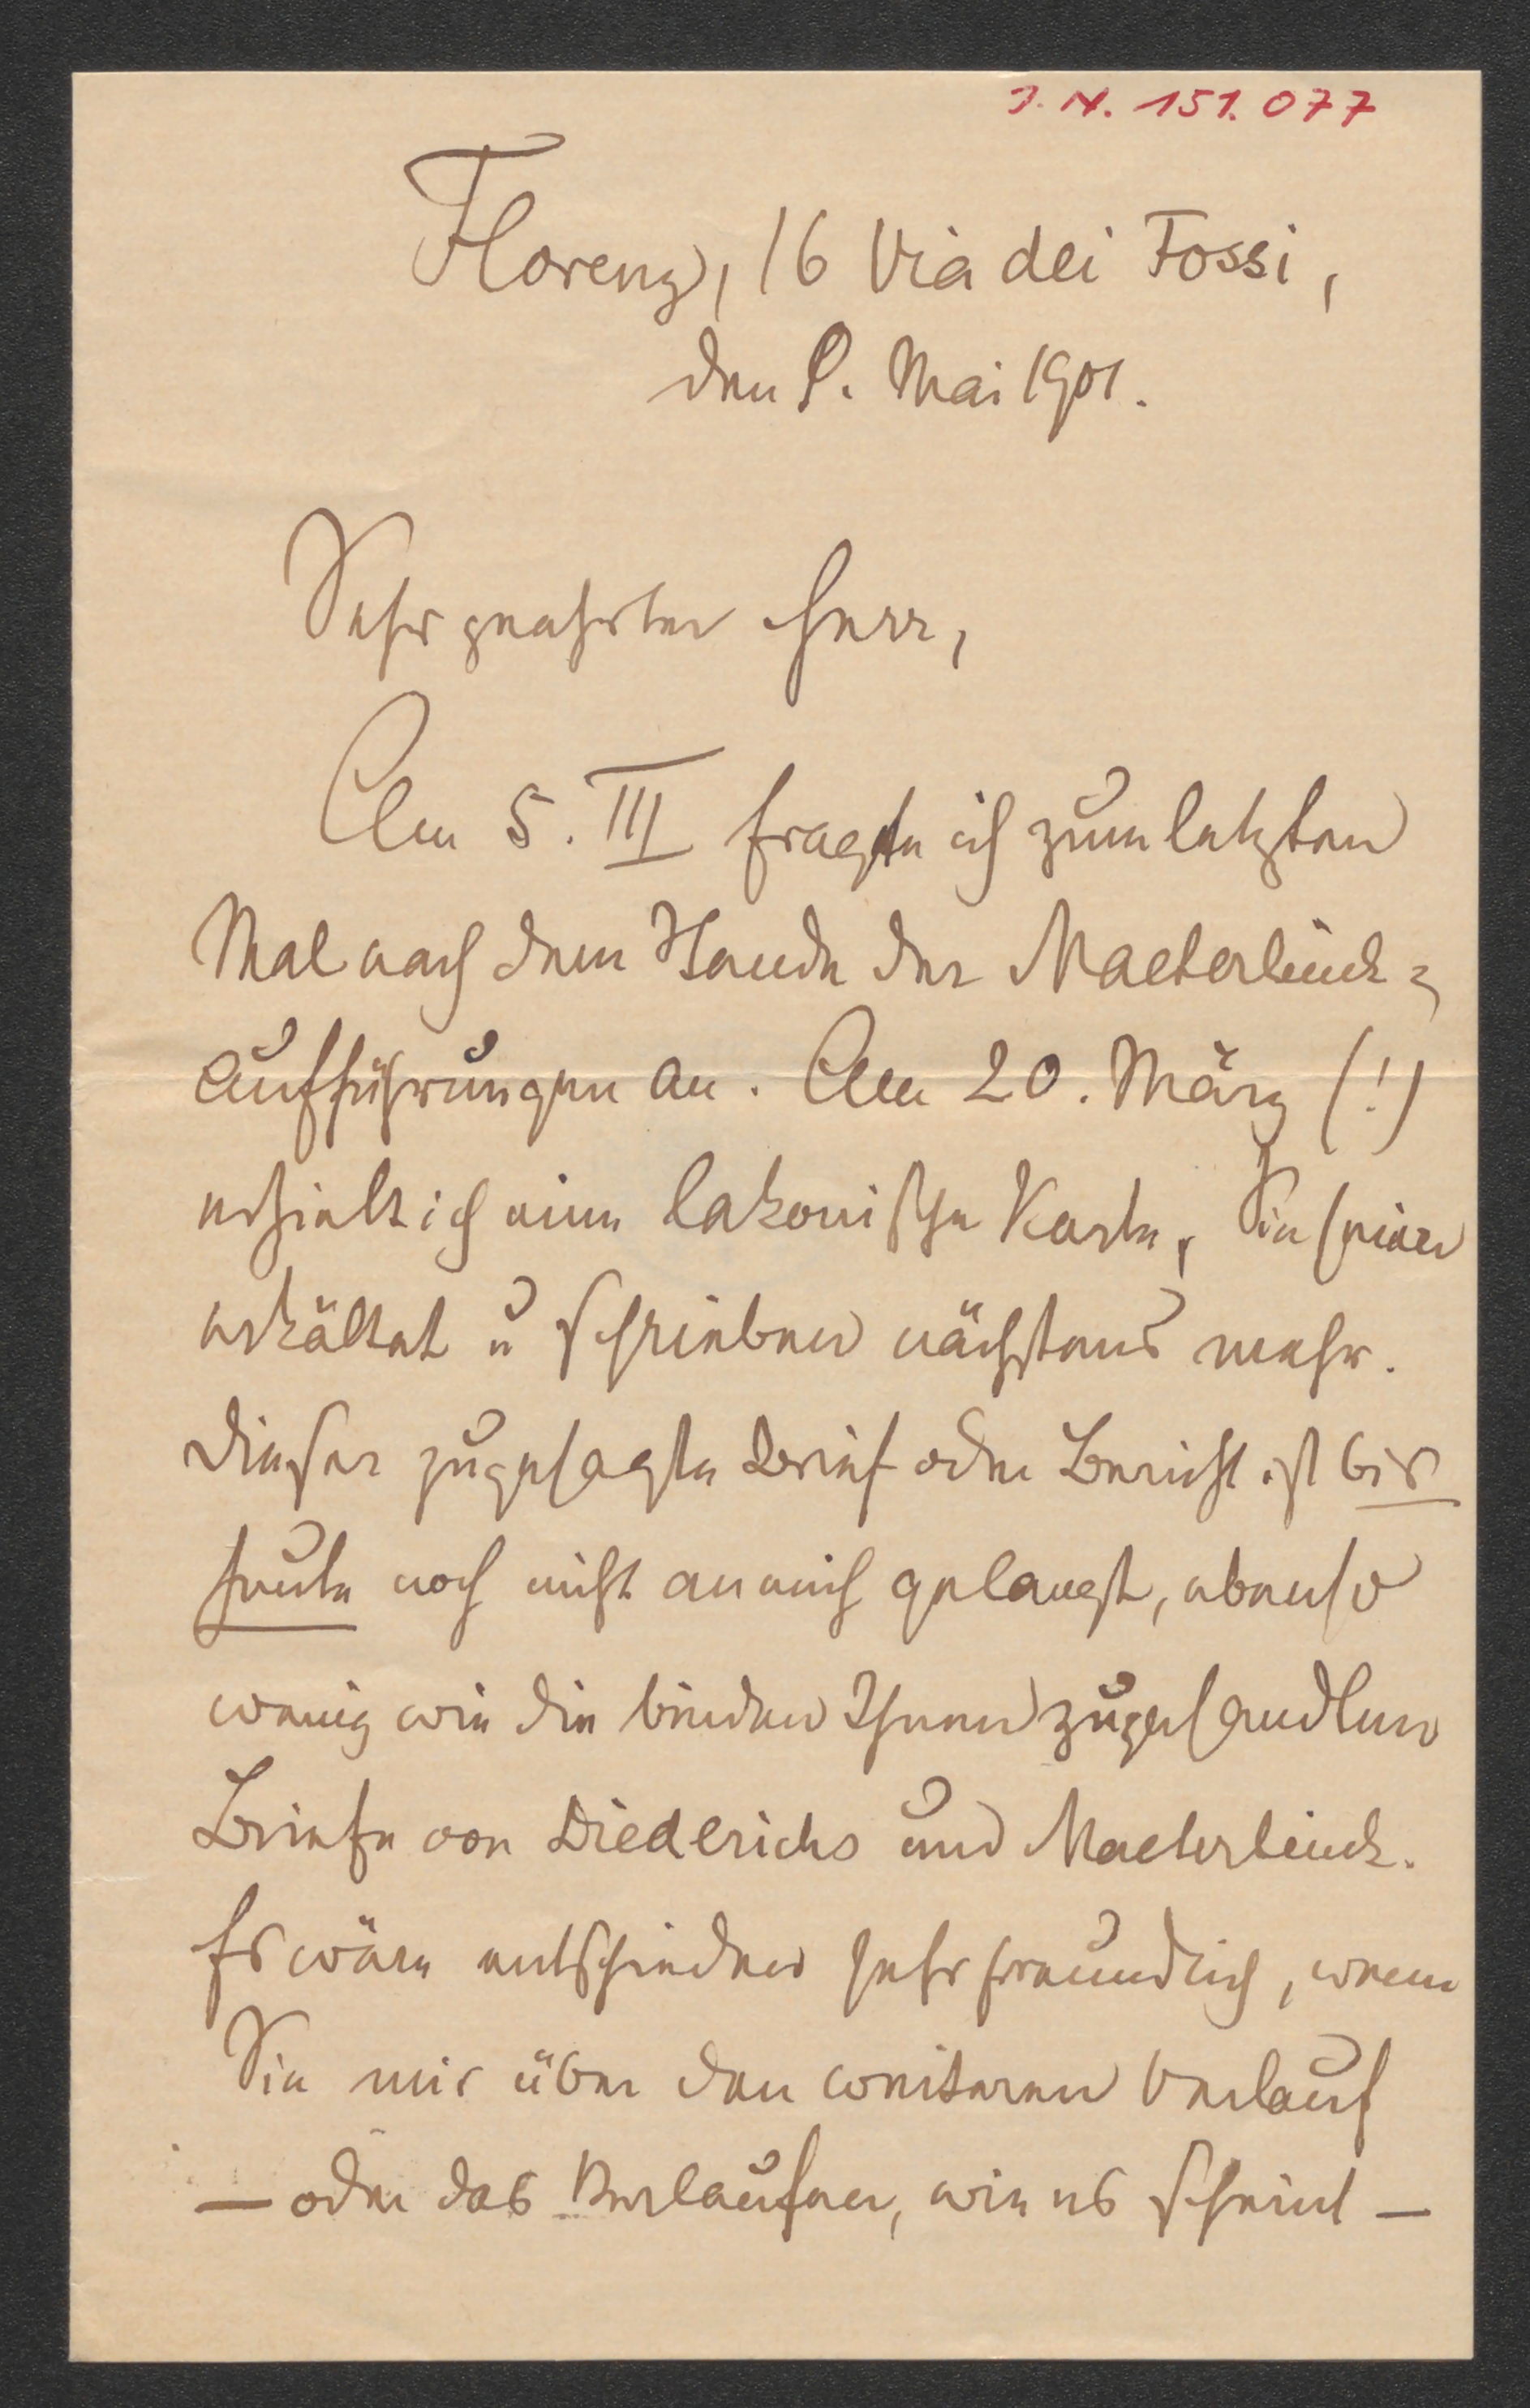 J. N. 151.077
Florenz, 16 Via dei Fossi,
den 8. Mai 1901.
Sehr geehrter Herr,
Am 5. III fragte ich zum letzten
Mal nach dem Stande der Maeterlinck-
Aufführungen an. Am 20. März (!)
erhielt ich eine lakonische Karte, Sie seien
erkältet u schrieben nächstens mehr.
Dieser zugesagte Brief oder Bericht ist bis
heute noch nicht an mich gelangt, ebenso
wenig wie die beiden Ihnen zugesandten
Briefe von Diederichs und Maeterlinck.
Es wäre entschieden sehr freundlich, wenn
Sie mir über den weiteren Verlauf
— oder das Verlaufen, wie es scheint —